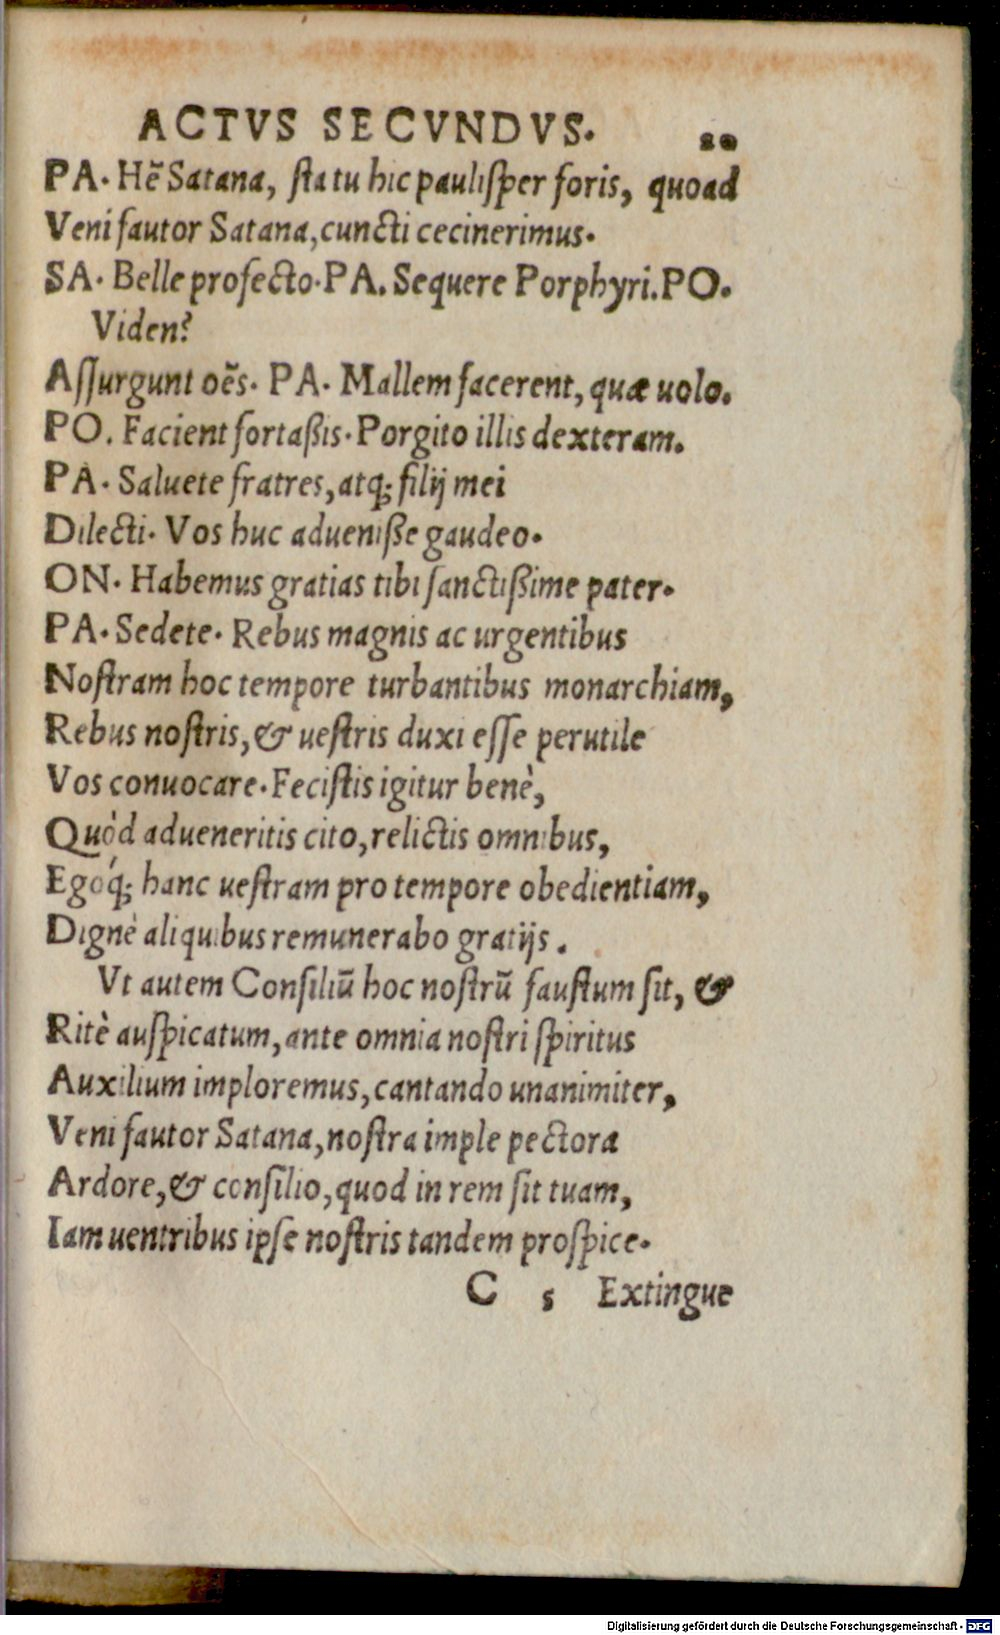 ACTVS SECVNDVS.
PA. Hē Satana, sta tu hic paulisper foris, quoad
Veni fautor Satana, cuncti cecinerimus.
SA. Belle profecto. PA. Sequere Porphyri. PO.
Viden?
Assurgunt oēs. PA. Mallem facerent, quæ uolo.
PO. Facient fortaßis. Porgito illis dexteram.
PA. Saluete fratres, atq; filij mei
Dilecti. Vos huc adueniße gaudeo.
ON. Habemus gratias tibi sanctißime pater.
PA. Sedete. Rebus magnis ac urgentibus
Nostram hoc tempore turbantibus monarchiam,
Rebus nostris, & uestris duxi esse perutile
Vos conuocare. Fecistis igitur benè,
Quòd adueneritis cito, relictis omnibus,
Egoq́; hanc uestram pro tempore obedientiam,
Dignè aliquibus remunerabo gratijs.
Vt autem Consiliū hoc nostrū faustum sit, &
Ritè auspicatum, ante omnia nostri spiritus
Auxilium imploremus, cantando unanimiter,
Veni fautor Satana, nostra imple pectora
Ardore, & consilio, quod in rem sit tuam,
Iam uentribus ipse nostris tandem prospice.
C 5 Extingue
Digitalisierung gefördert durch die Deutsche Forschungsgemeinschaft - DFG